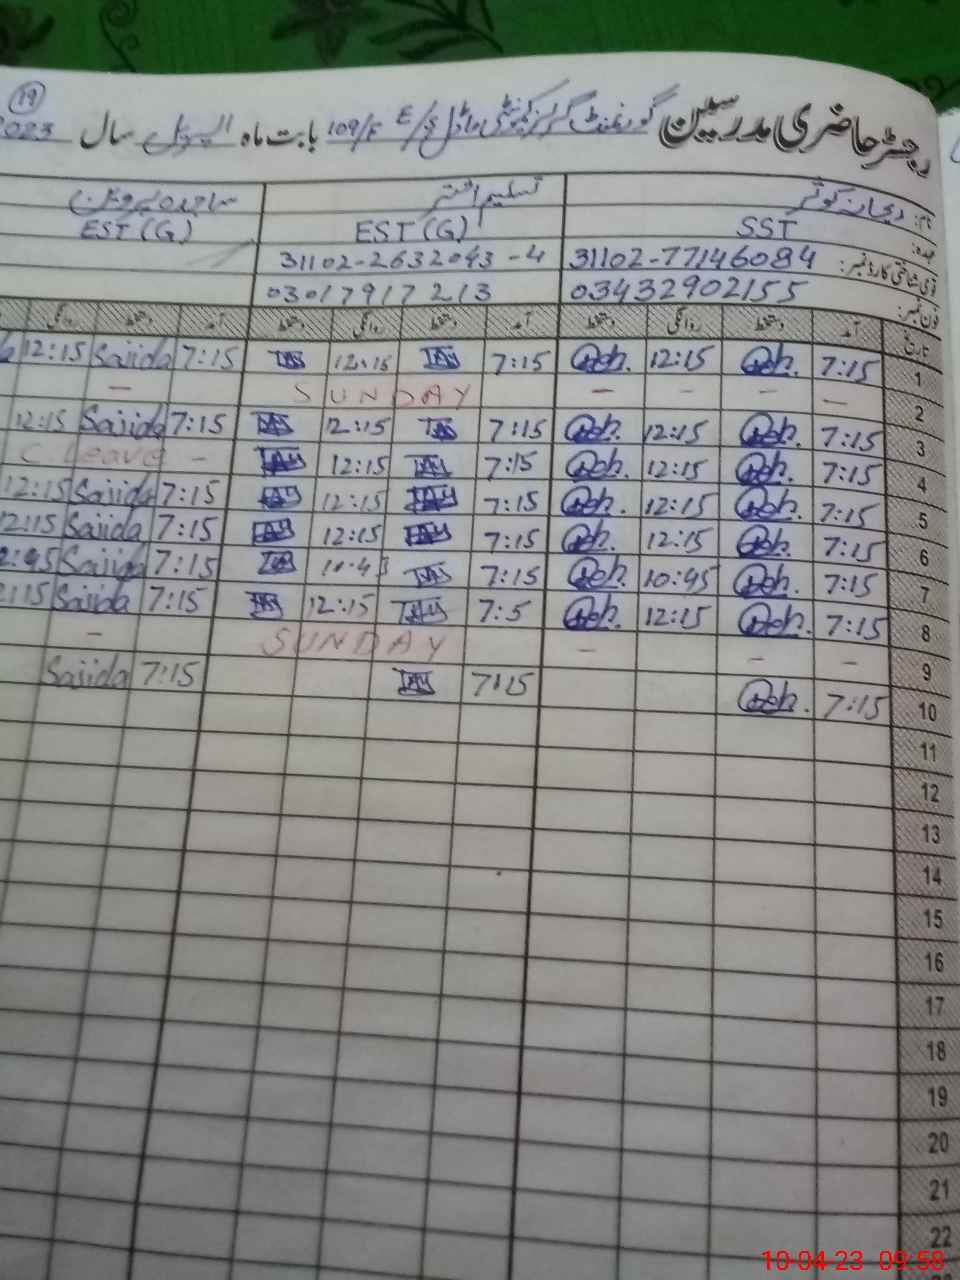 19
رجسٹر حاضری مدرسین گورنمنٹ گرلز کمیونٹی ماڈل E/S 109/F بابت ماہ اپریل سال 2023
نام: ریحانہ کوثر تسلیم اختر ساجدہ پروین
عہدہ: SST EST (G) EST (G)
قومی شناختی کارڈ نمبر: 31102-77146084 31102-2632043-4
فون نمبر: 03432902155 03017917213
تاریخ آمد دستخط روانگی دستخط آمد دستخط روانگی دستخط آمد دستخط روانگی
1 7:15 12:15 7:15 12:15 7:15 Sajida 12:15
2 — – – – SUNDAY –
3 7:15 12:15 7:15 12:15 7:15 Sajida 12:15
4 7:15 12:15 7:15 12:15 – C Leave
5 7:15 12:15 7:15 12:15 7:15 Sajida 12:15
6 7:15 12:15 7:15 12:15 7:15 Sajida 12:15
7 7:15 10:45 7:15 10:45 7:15 Sajida
8 7:15 12:15 7:5 12:15 7:15 Sajida
9 – – – SUNDAY –
10 7:15 7:15 7:15 Sajida
11
12
13
14
15
16
17
18
19
20
21
22
10-04-23 09:58